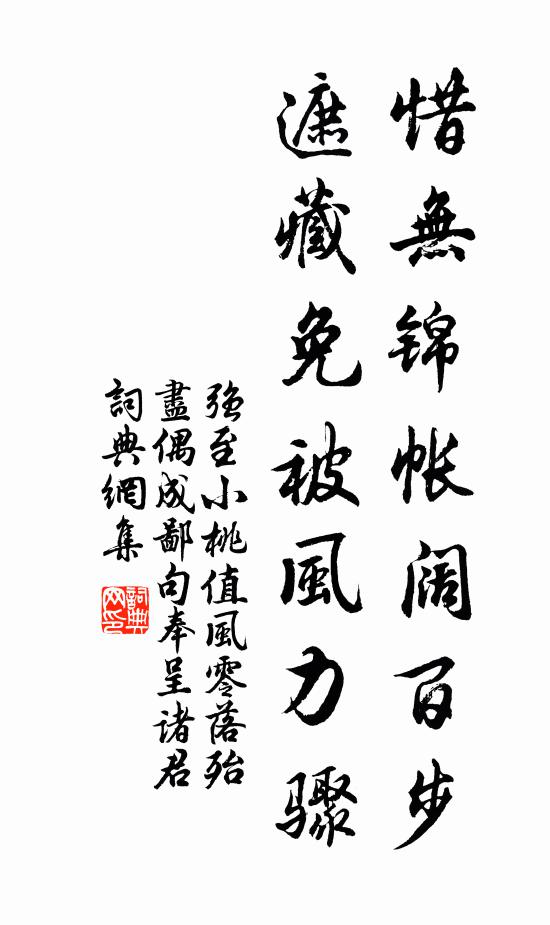 惜無錦帐阔百步
遮藏免被風力驟
强至小桃值風零落殆
盡偶成鄙句奉呈诸君
詞典網集
詞典网印